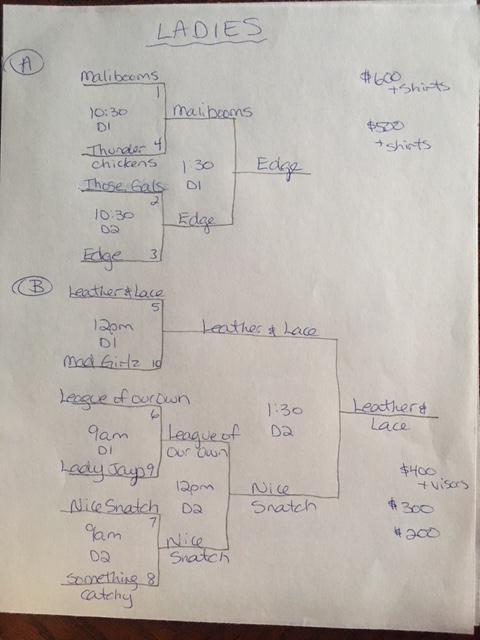 LADIES
A
Malibooms
1
$600
+ shirts
10:30
D1
Malibooms
Thunder 4
chickens
$500
+ shirts
1:30
D1
Edge
Those Gals
2
10:30
D2
Edge
Edge 3
B
Leather & Lace
5
12pm
D1
Leather & Lace
Mad Girlz 10
League of Our Own
6
9am
D1
1:30
D2
Leather &
Lace
League of
Our Own
Lady Jays 9
12pm
D2
Nice
Snatch
$400
+ visors
$300
$200
Nice Snatch
7
9am
D2
Nice
Snatch
Something 8
catchy